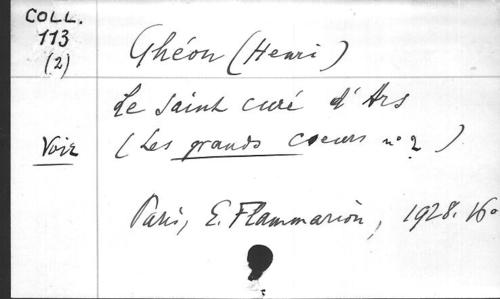 COLL.
113
(2)
Ghéon (Henri)
Le saint curé d'Ars
Voir
(Les grands coeurs n° 2)
Paris, E. Flammarion, 1928. 16°